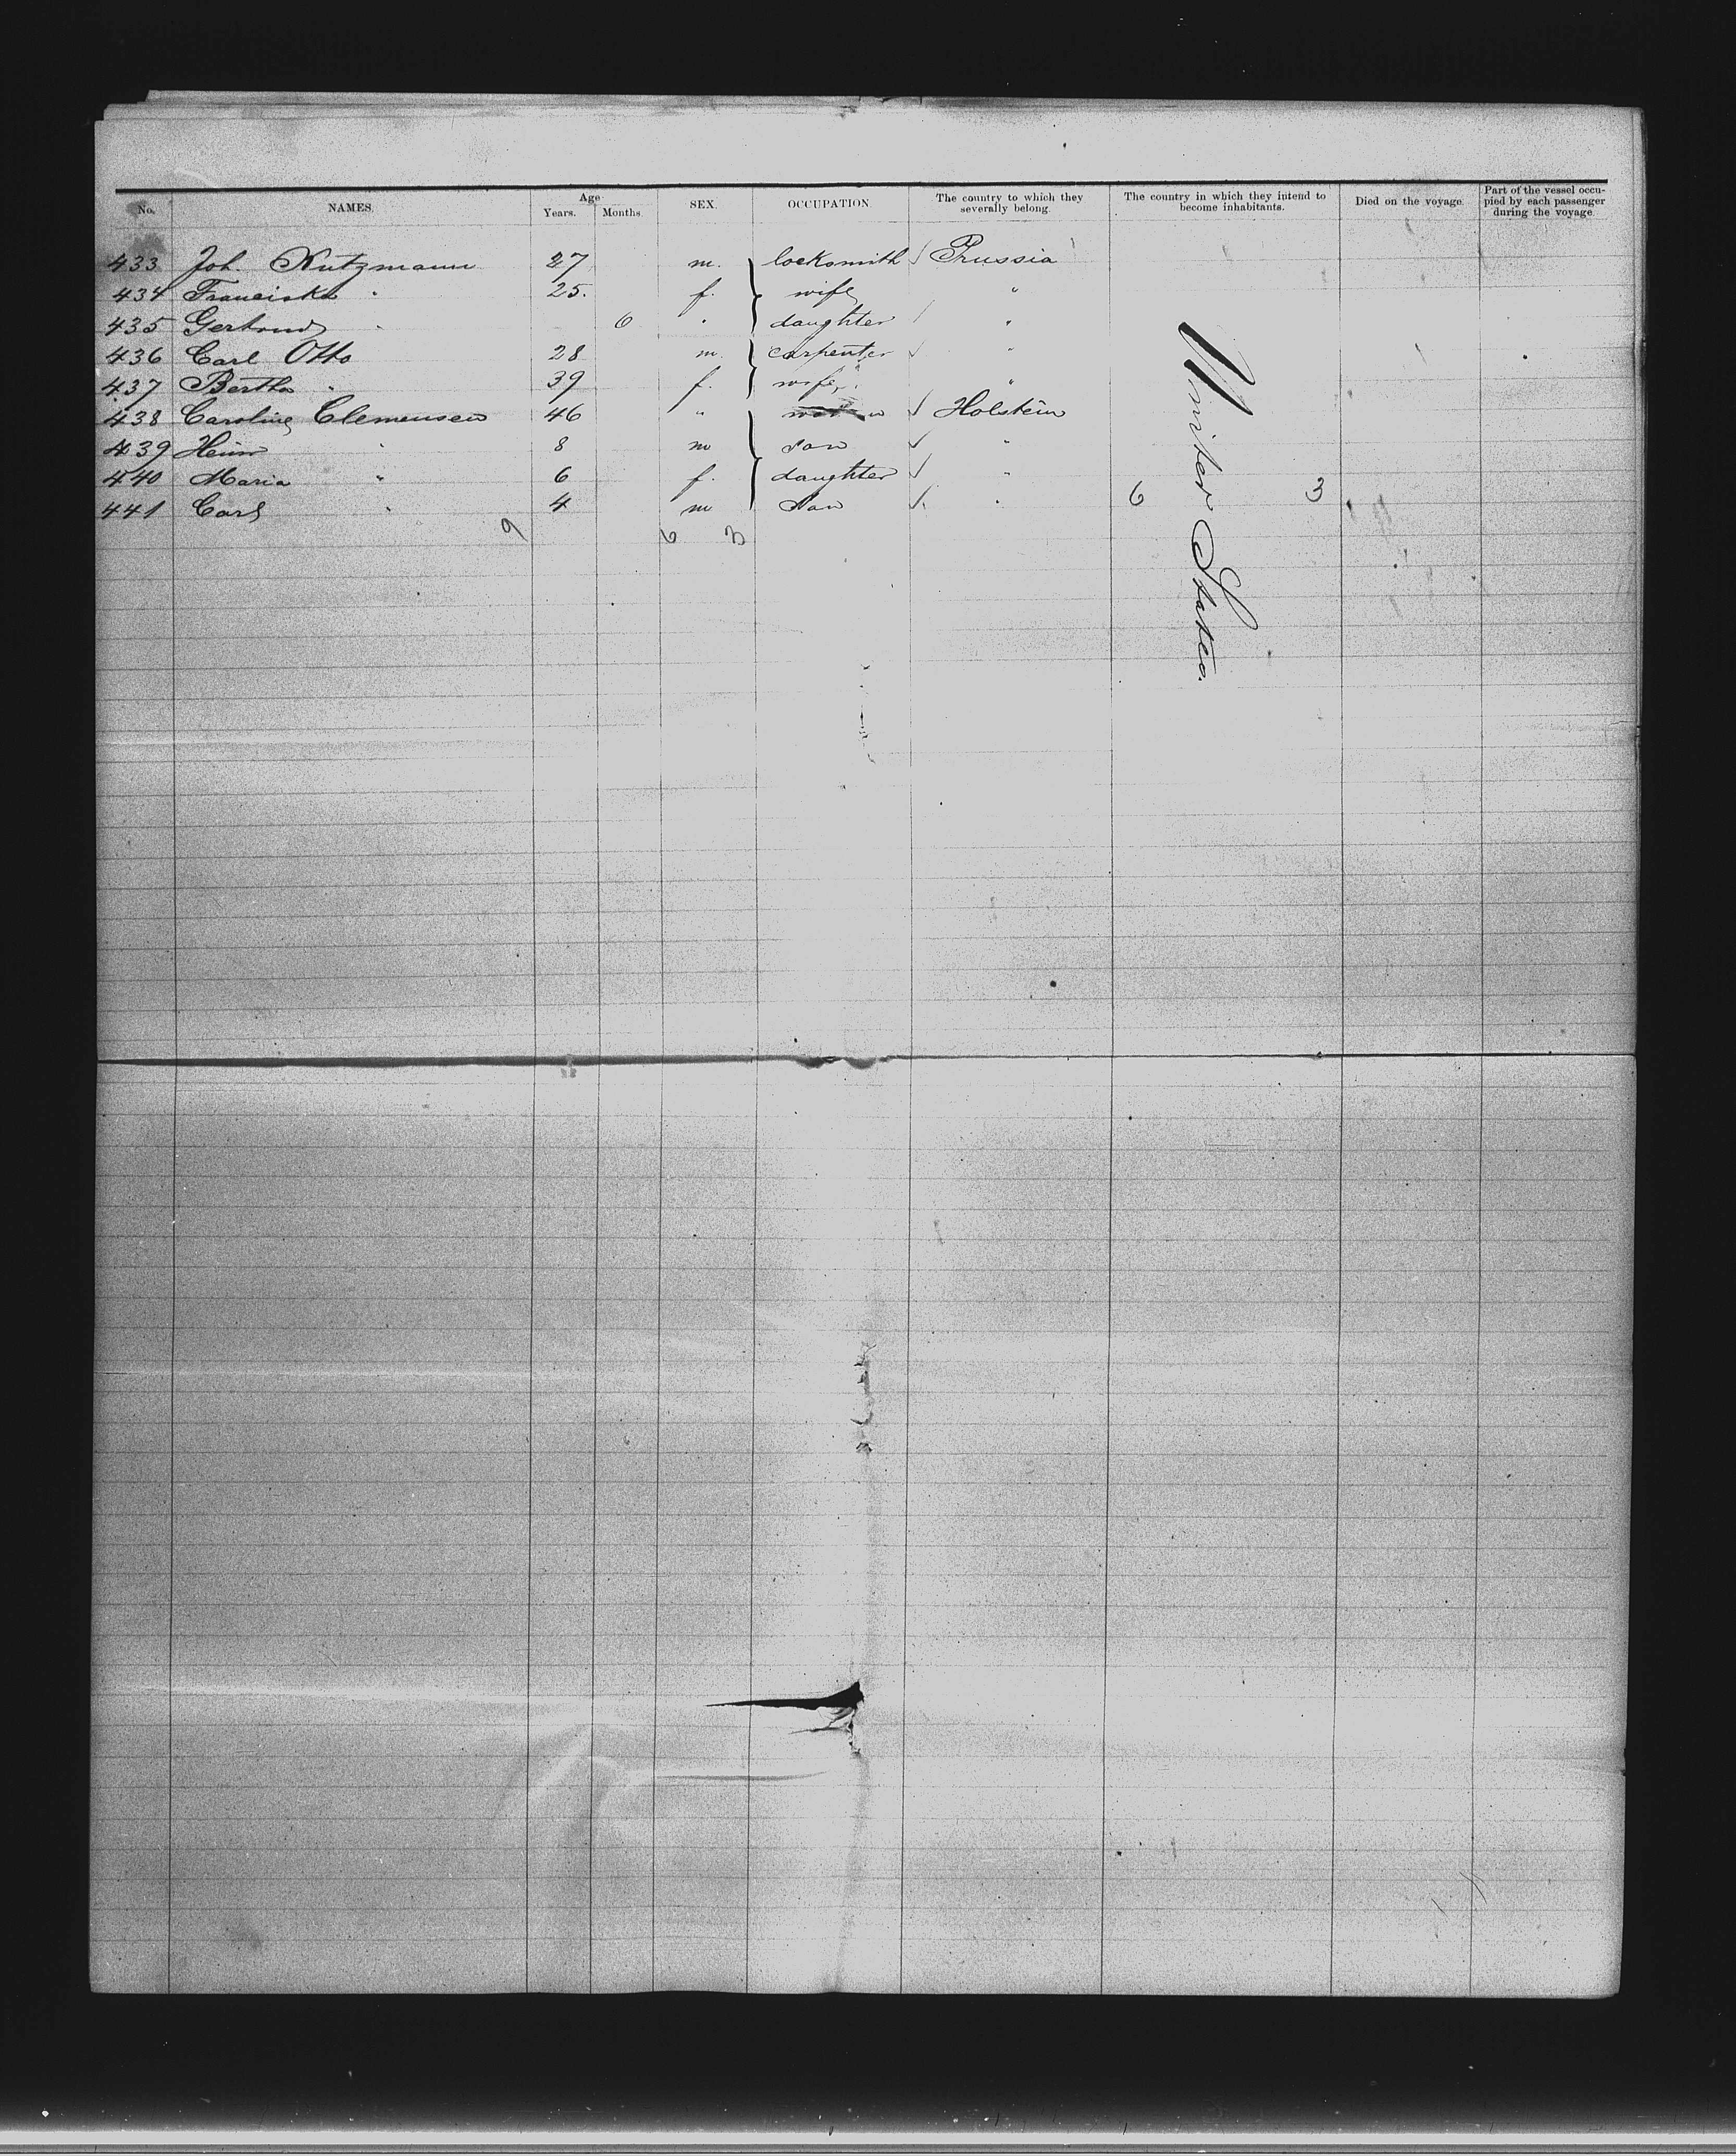 No. NAMES. Age Years. Months. SEX. OCCUPATION. The country to which they severally belong. The country in which they intend to become inhabitants. Died on the voyage. Part of the vessel occupied by each passenger during the voyage.
433 Joh. Kutzmann 27 m. locksmith Prussia
434 Franciska " 25. f. wife "
435 Gertrud " 6 " daughter "
436 Carl Otto 28 m. carpenter "
437 Bertha " 39 f. wife "
438 Caroline Clemensen 46 " Holstein
439 Heinr " 8 m son "
440 Maria " 6 f. daughter "
441 Carl " 4 m son "
6 3
9 6 3
United States.